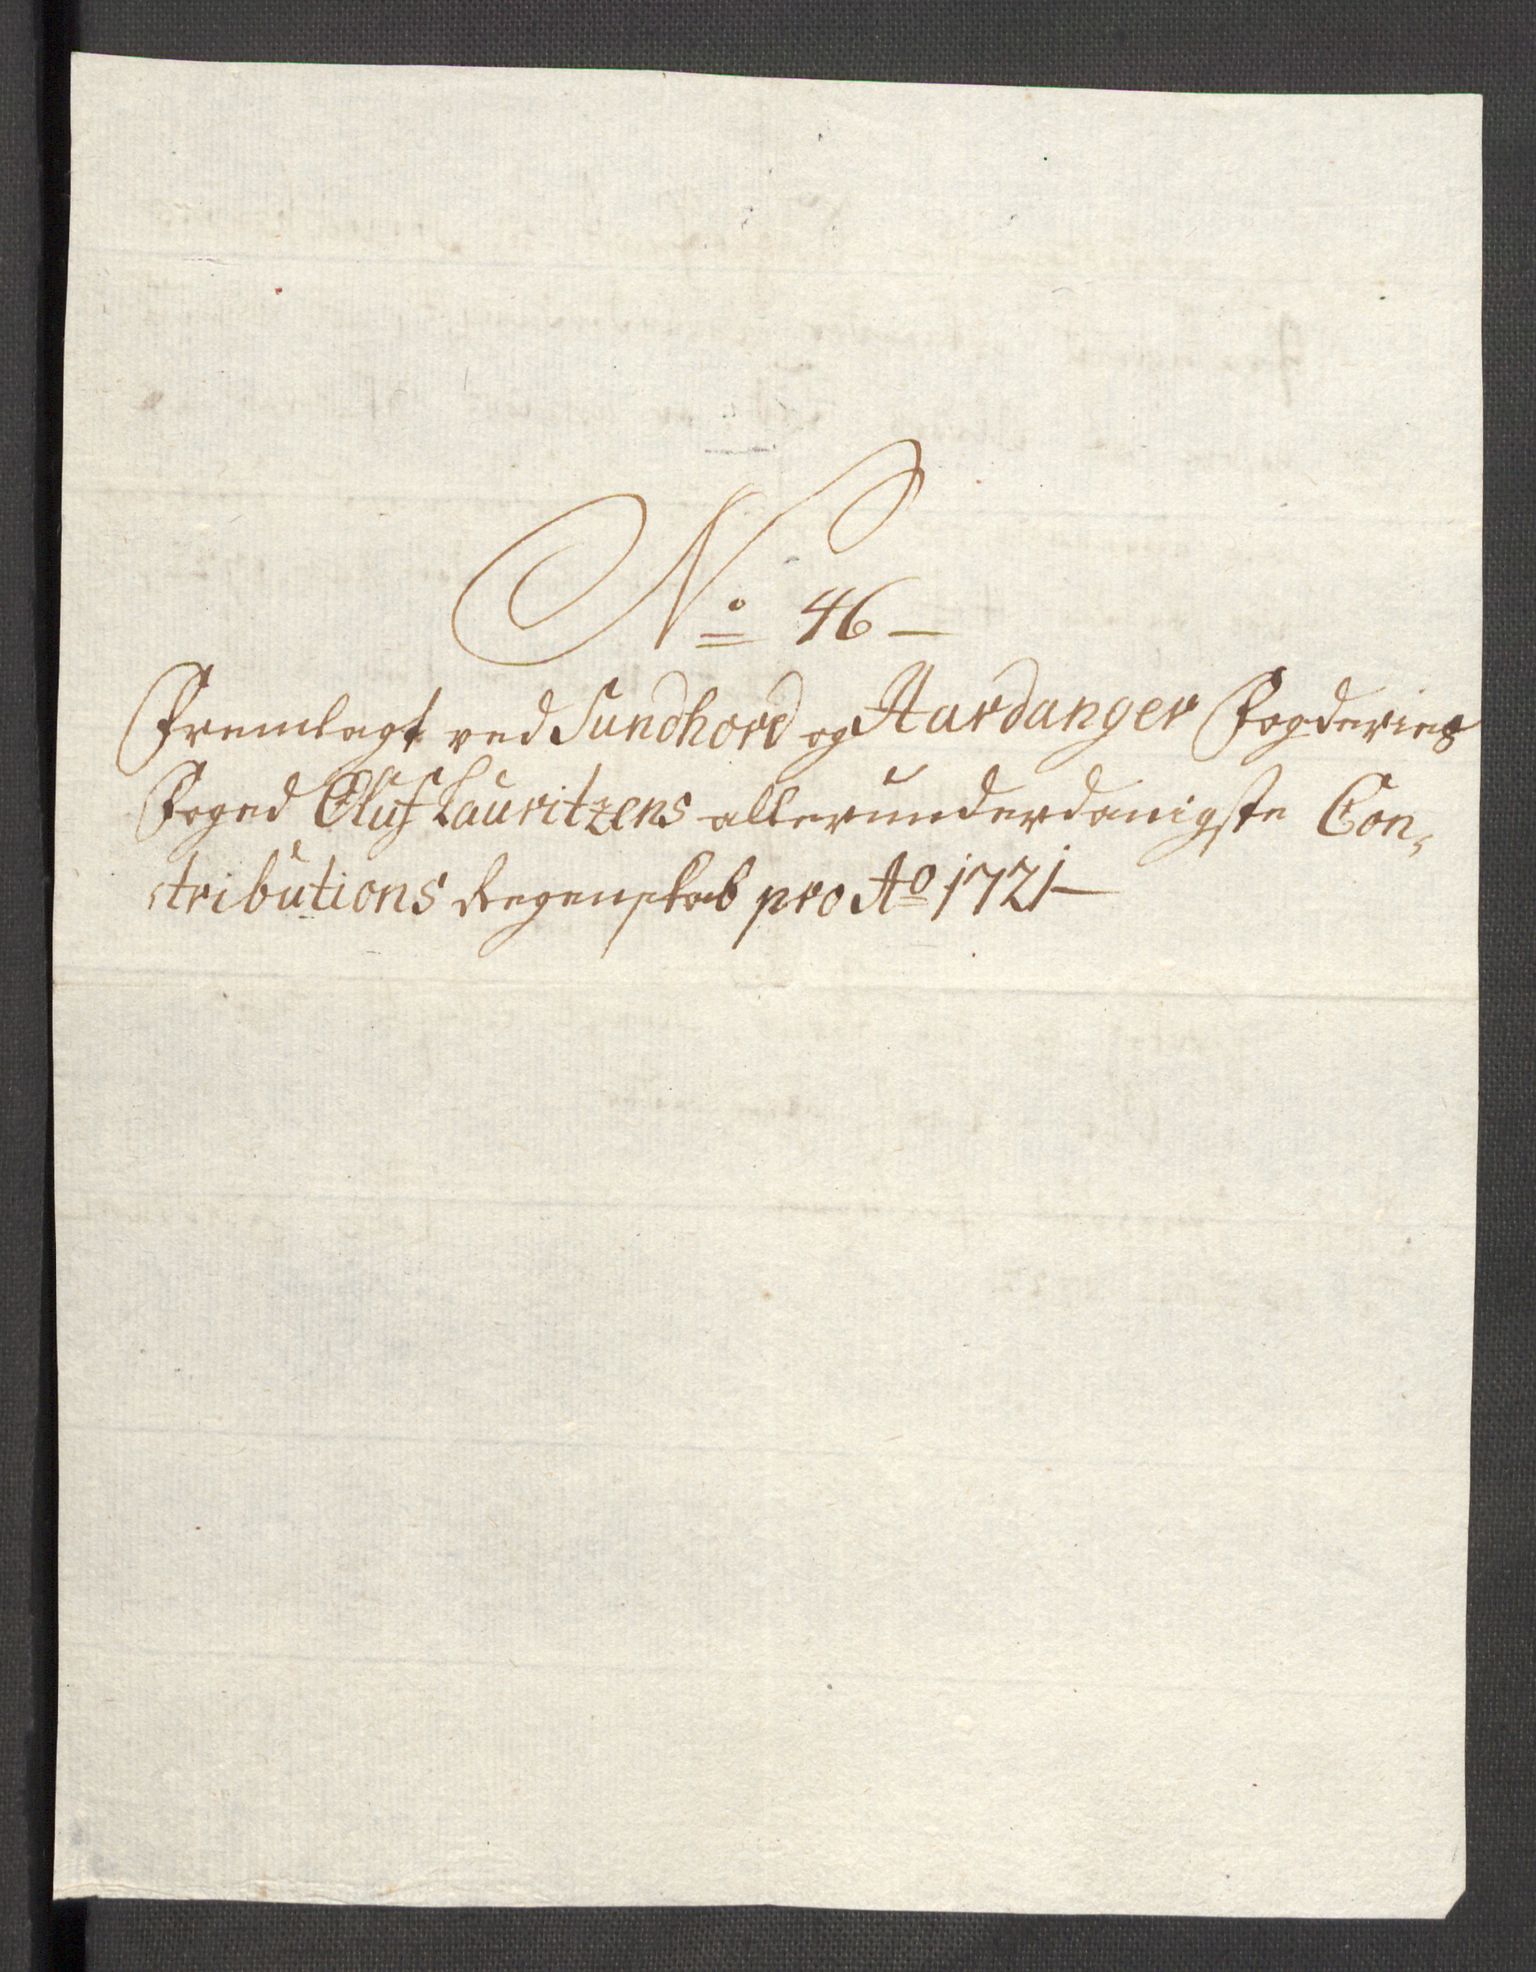 No 46 –
Fremlagt ved Sundhord og Hardanger Fogderies
Foged Oluf Lauritzens allerunderdanigste Con,
tributions Regenskab pro Ao 1721 –